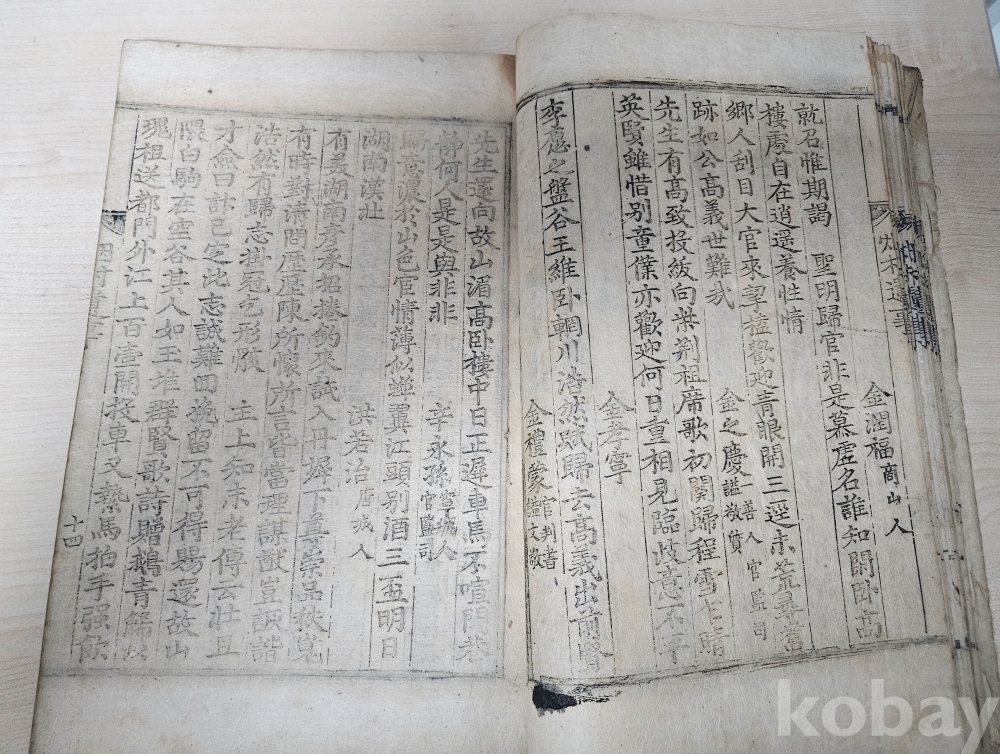 金潤福商山人
就召惟期謁　聖明歸官非是慕虛名誰知閑卧高
樓處自在逍遥養性情
金之慶一善人官監司謚敬質
鄉人刮目大官來挈榼歡迎青眼開三逕未荒尋舊
跡如公高義世難哉
金孝寧
先生有高致投紱向柴荆祖席歌初闋歸程雪乍晴
英賢雖惜别童僕亦歡迎何日重相見臨歧意不平
金禮蒙官判書謚文敬
李愿之盤谷王維卧輞川浩然賦歸去高義出前賢
先生還向故山湄高卧樓中日正遲車馬不喧門巷
静何人是是與非非
辛永孫寧城人官監司
歸意濃於山色宦情薄似蟬翼江頭别酒三盃明日
湖南漢北
洪若治唐城人
有美湖南彦承招捲釣來試入丹墀下尊崇品秩
有時對清問歷陳所懷所言皆當理謀猷豈詼諧
浩然有歸志掛冠之形骸　主上知末老傳云壮且
才僉曰計已定此志誠難回挽留不可得賜還故山
隈白駒在空谷其人如玉堆群賢歌詩贈鵝青
祖送都門外江上百壺開投車又繫馬拍手强飲
十四
kobay